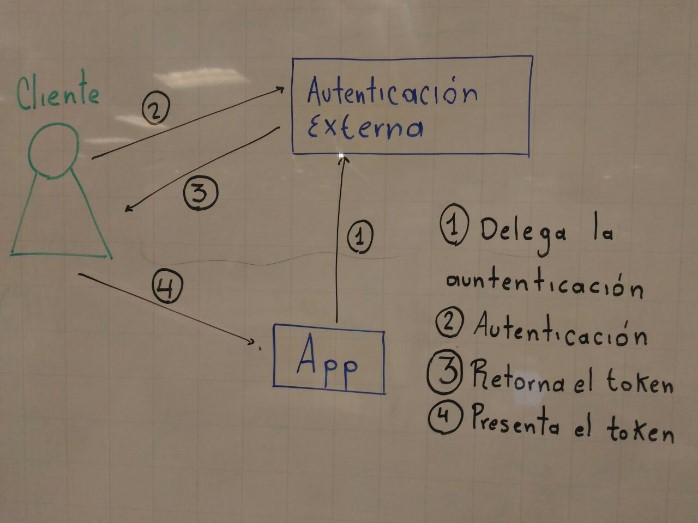 Cliente
2
Autenticación
Externa
3
1
4
App
1 Delega la
auntenticación
2 Autenticación
3 Retorna el token
4 Presenta el token